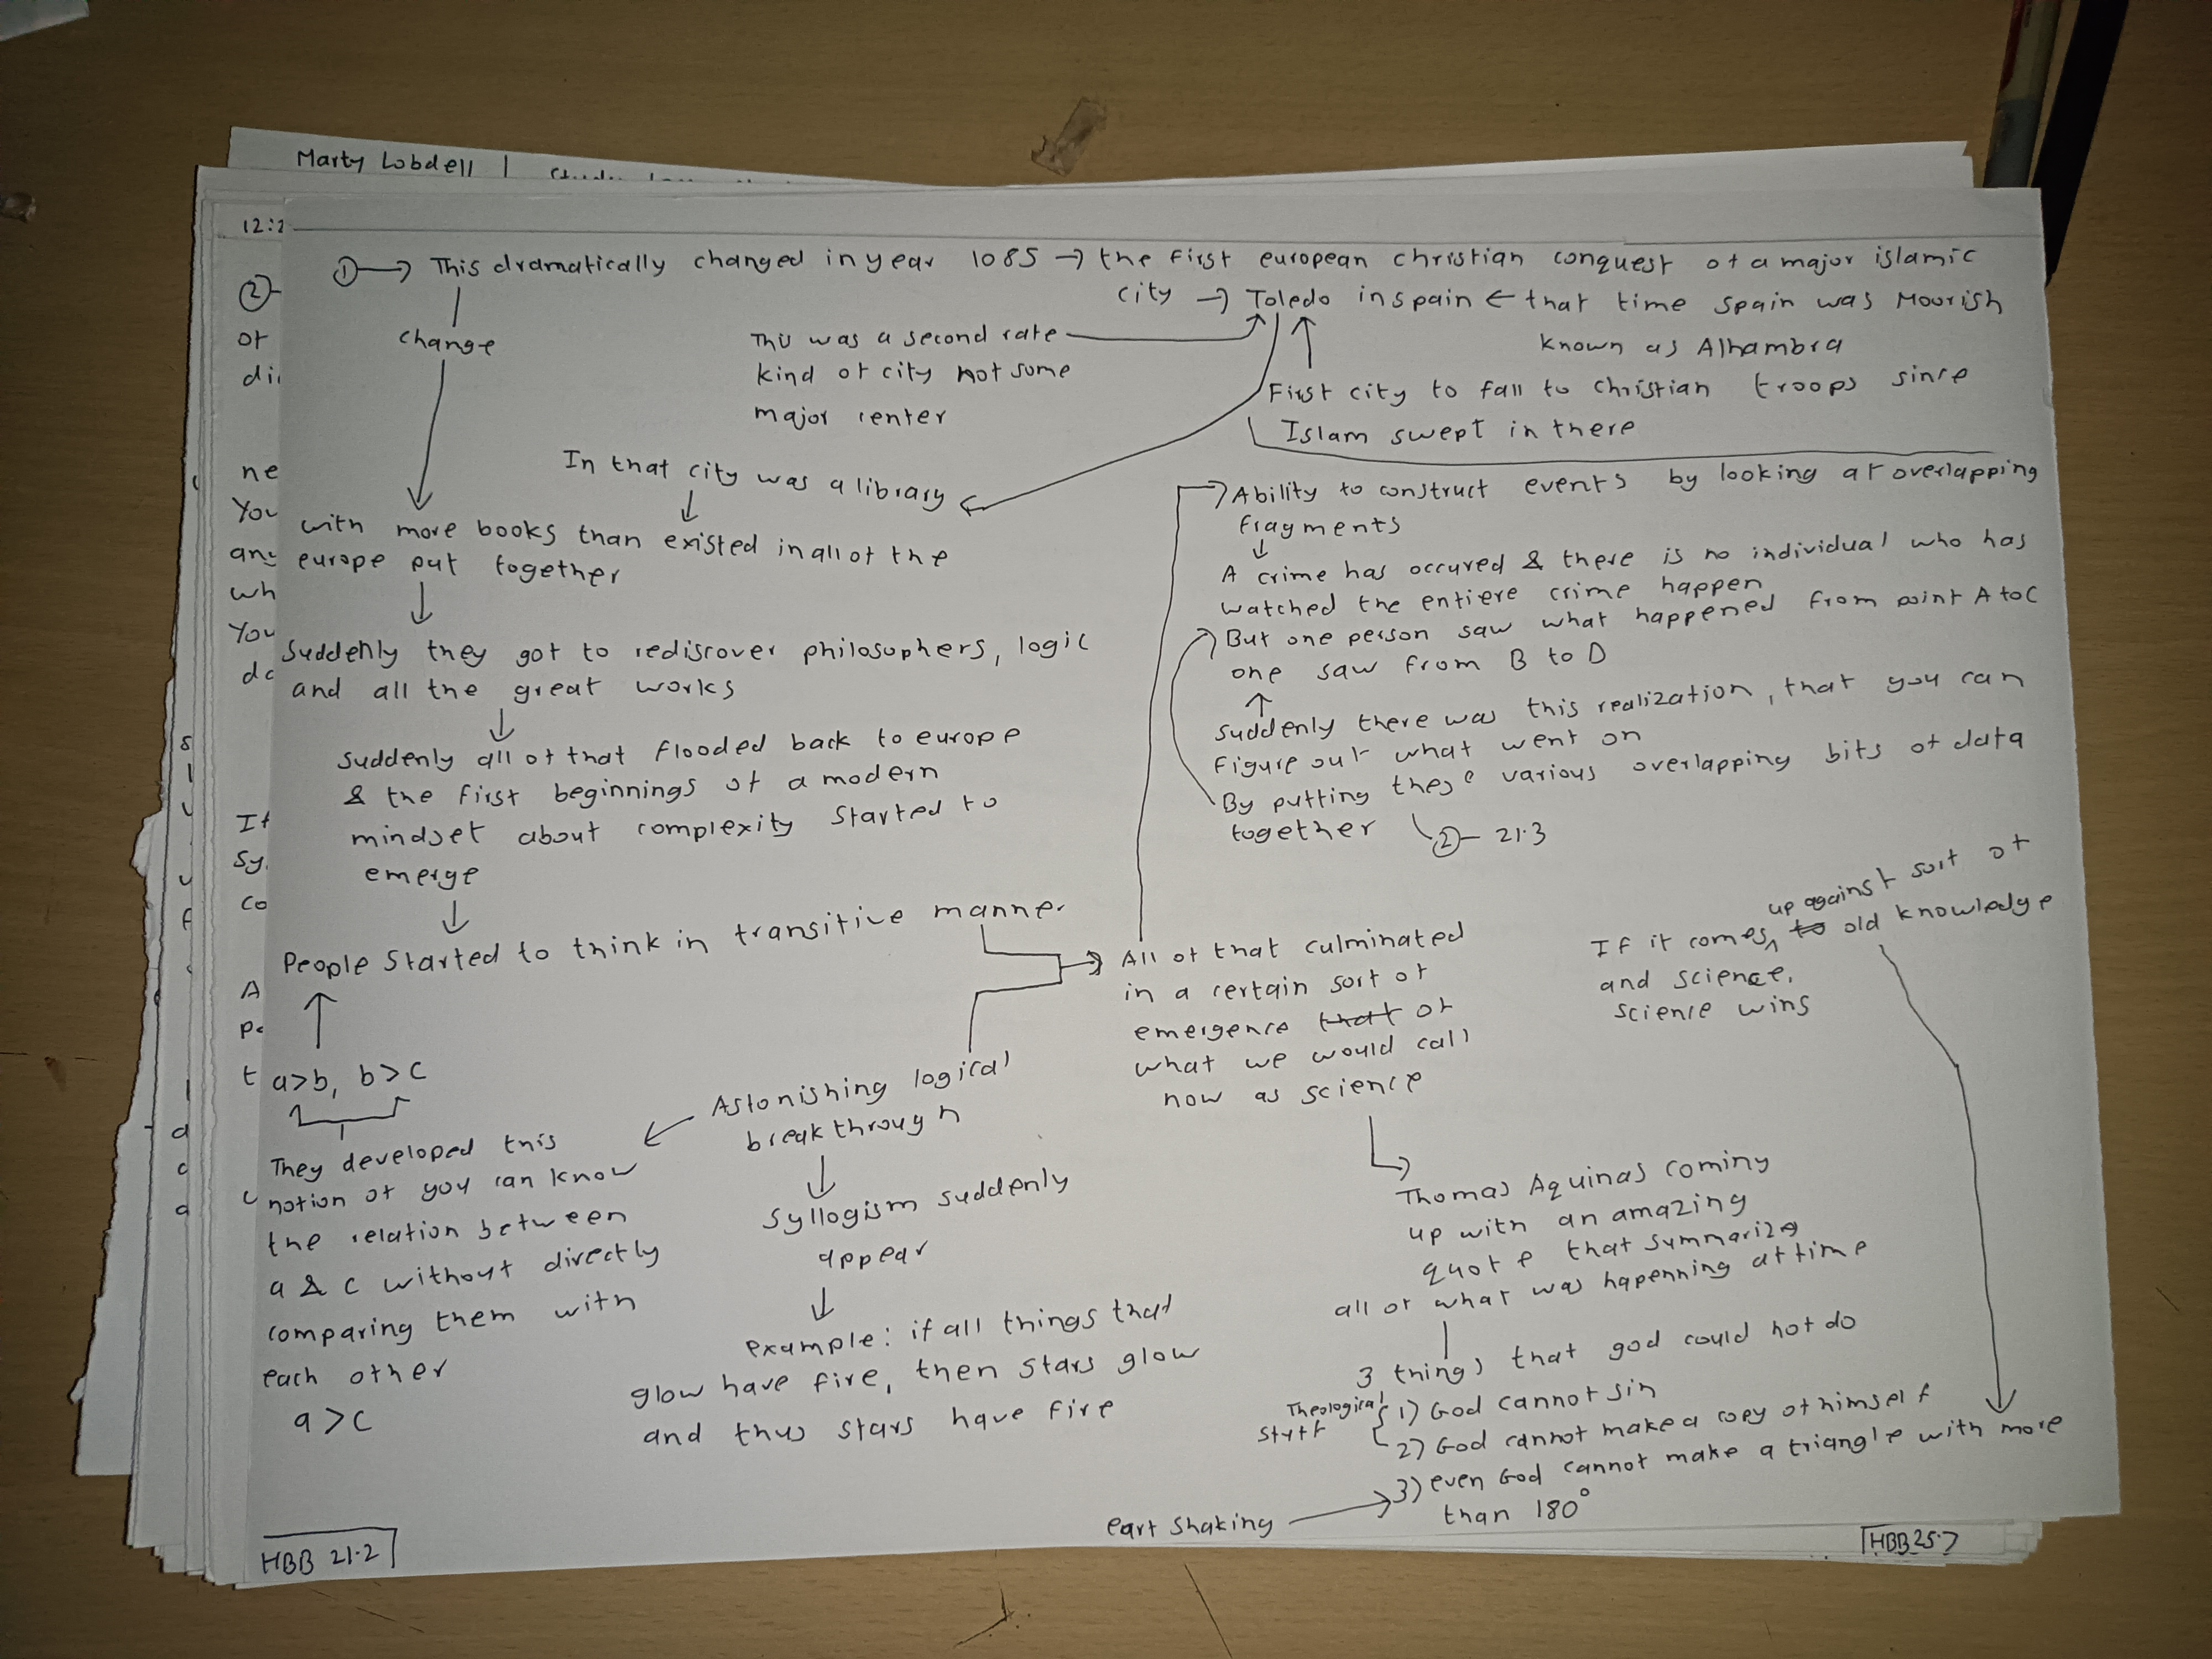 Marty Lobdell |
12:2
① → This dramatically changed in year 1085 → the first european christian conquest of a major islamic
city → Toledo in spain ← that time spain was Mourish
known as Alhambra
change
This was a second rate
kind of city not some
major center
First city to fall to christian troops since
Islam swept in there
In that city was a library
with more books than existed in all of the
europe put together
Suddenly they got to rediscover philosophers, logic
and all the great works
Suddenly all of that flooded back to europe
& the first beginnings of a modern
mindset about complexity started to
emerge
People started to think in transitive manner
a>b, b>c
They developed this
notion of you can know
the relation between
a & c without directly
comparing them with
each other
a>c
Astonishing logical
breakthrough
Syllogism suddenly
appear
example: if all things that
glow have fire, then stars glow
and thus stars have fire
Ability to construct events by looking at overlapping
fragments
A crime has occured & there is no individual who has
watched the entiere crime happen
But one person saw what happened from point A to C
one saw from B to D
Suddenly there was this realization, that you can
figure out what went on
By putting these various overlapping bits of data
together
② - 21.3
All of that culminated
in a certain sort of
emergence that of
what we would call
now as science
up against sort of
If it comes to old knowledge
and science,
science wins
Thomas Aquinas coming
up with an amazing
quote that summarize
all of what was hapenning at time
3 things that god could not do
Theological
stuff
1) God cannot sin
2) God cannot make a copy of himself
3) even God cannot make a triangle with more
than 180°
eart shaking
HBB 21.2
HBB 25.7
②-
of
ne
You
wh
You
If
co
A